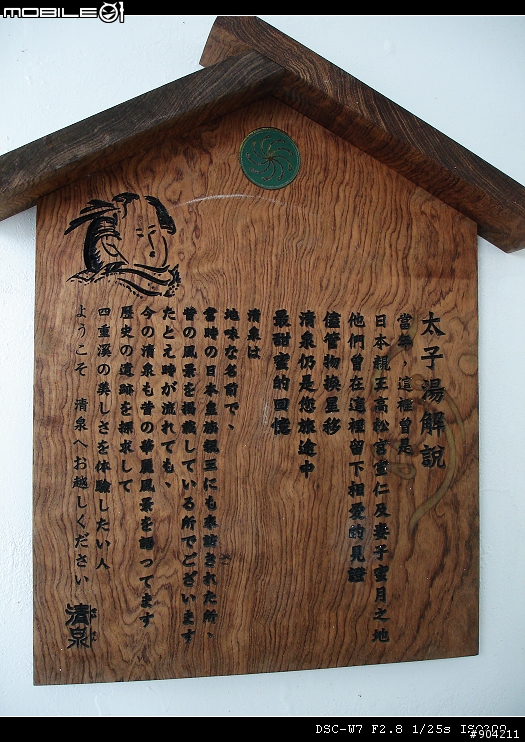 MOBILE01
太子湯解說
當年，這裡曾是
日本親王高松宮宣仁及妻子蜜月之地
他們曾在這裡留下相愛的見證
儘管物換星移
清泉仍是您旅途中
最甜蜜的回憶
清泉は
地味な名前で、
當時の日本皇族親王にも来訪された所、
昔の風景を掲載している所でございます
たとえ時が流れても、
今の清泉も昔の華麗風景を語ってます
歷史の遺跡を探求して
四重溪の美しさを体験したい人
ようこそ 清泉へお越しください
清泉
DSC-W7 F2.8 1/25s ISO200
#904211